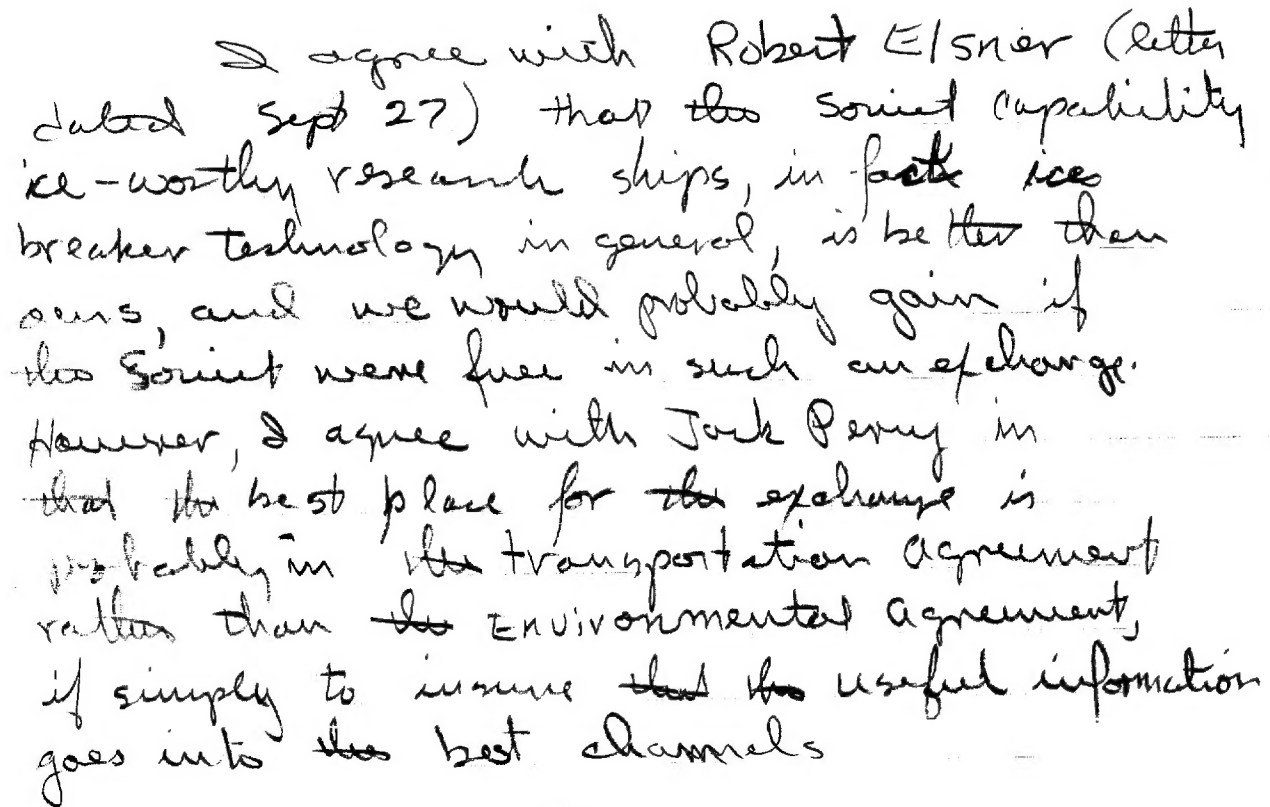 I agree with Robert Elsner (letter
dated Sept 27) that the Soviet capability
ice-worthy research ships, in fact ice
breaker technology in general, is better than
ours, and we would probably gain if
the Soviet were free in such an exchange.
However, I agree with Jack Perry in
that the best place for the exchange is
probably in the transportation agreement
rather than the Environmental agreement,
if simply to insure that the useful information
goes into the best channels